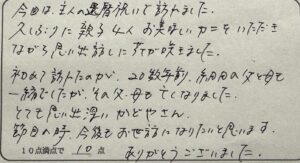 今回は、主人の還暦祝いで訪れました。
久しぶりに親子4人お美味しいカニをいただき
ながら思い出話しに花が咲きました。
初めて訪れたのが、20数年前、納得の父と母も
一緒でしたが、その父、母も亡くなりました。
とても思い出深いかどやさん。
節目の時、今後もお世話になりたいと思います。
10点満点で 10 点 ありがとうございました。